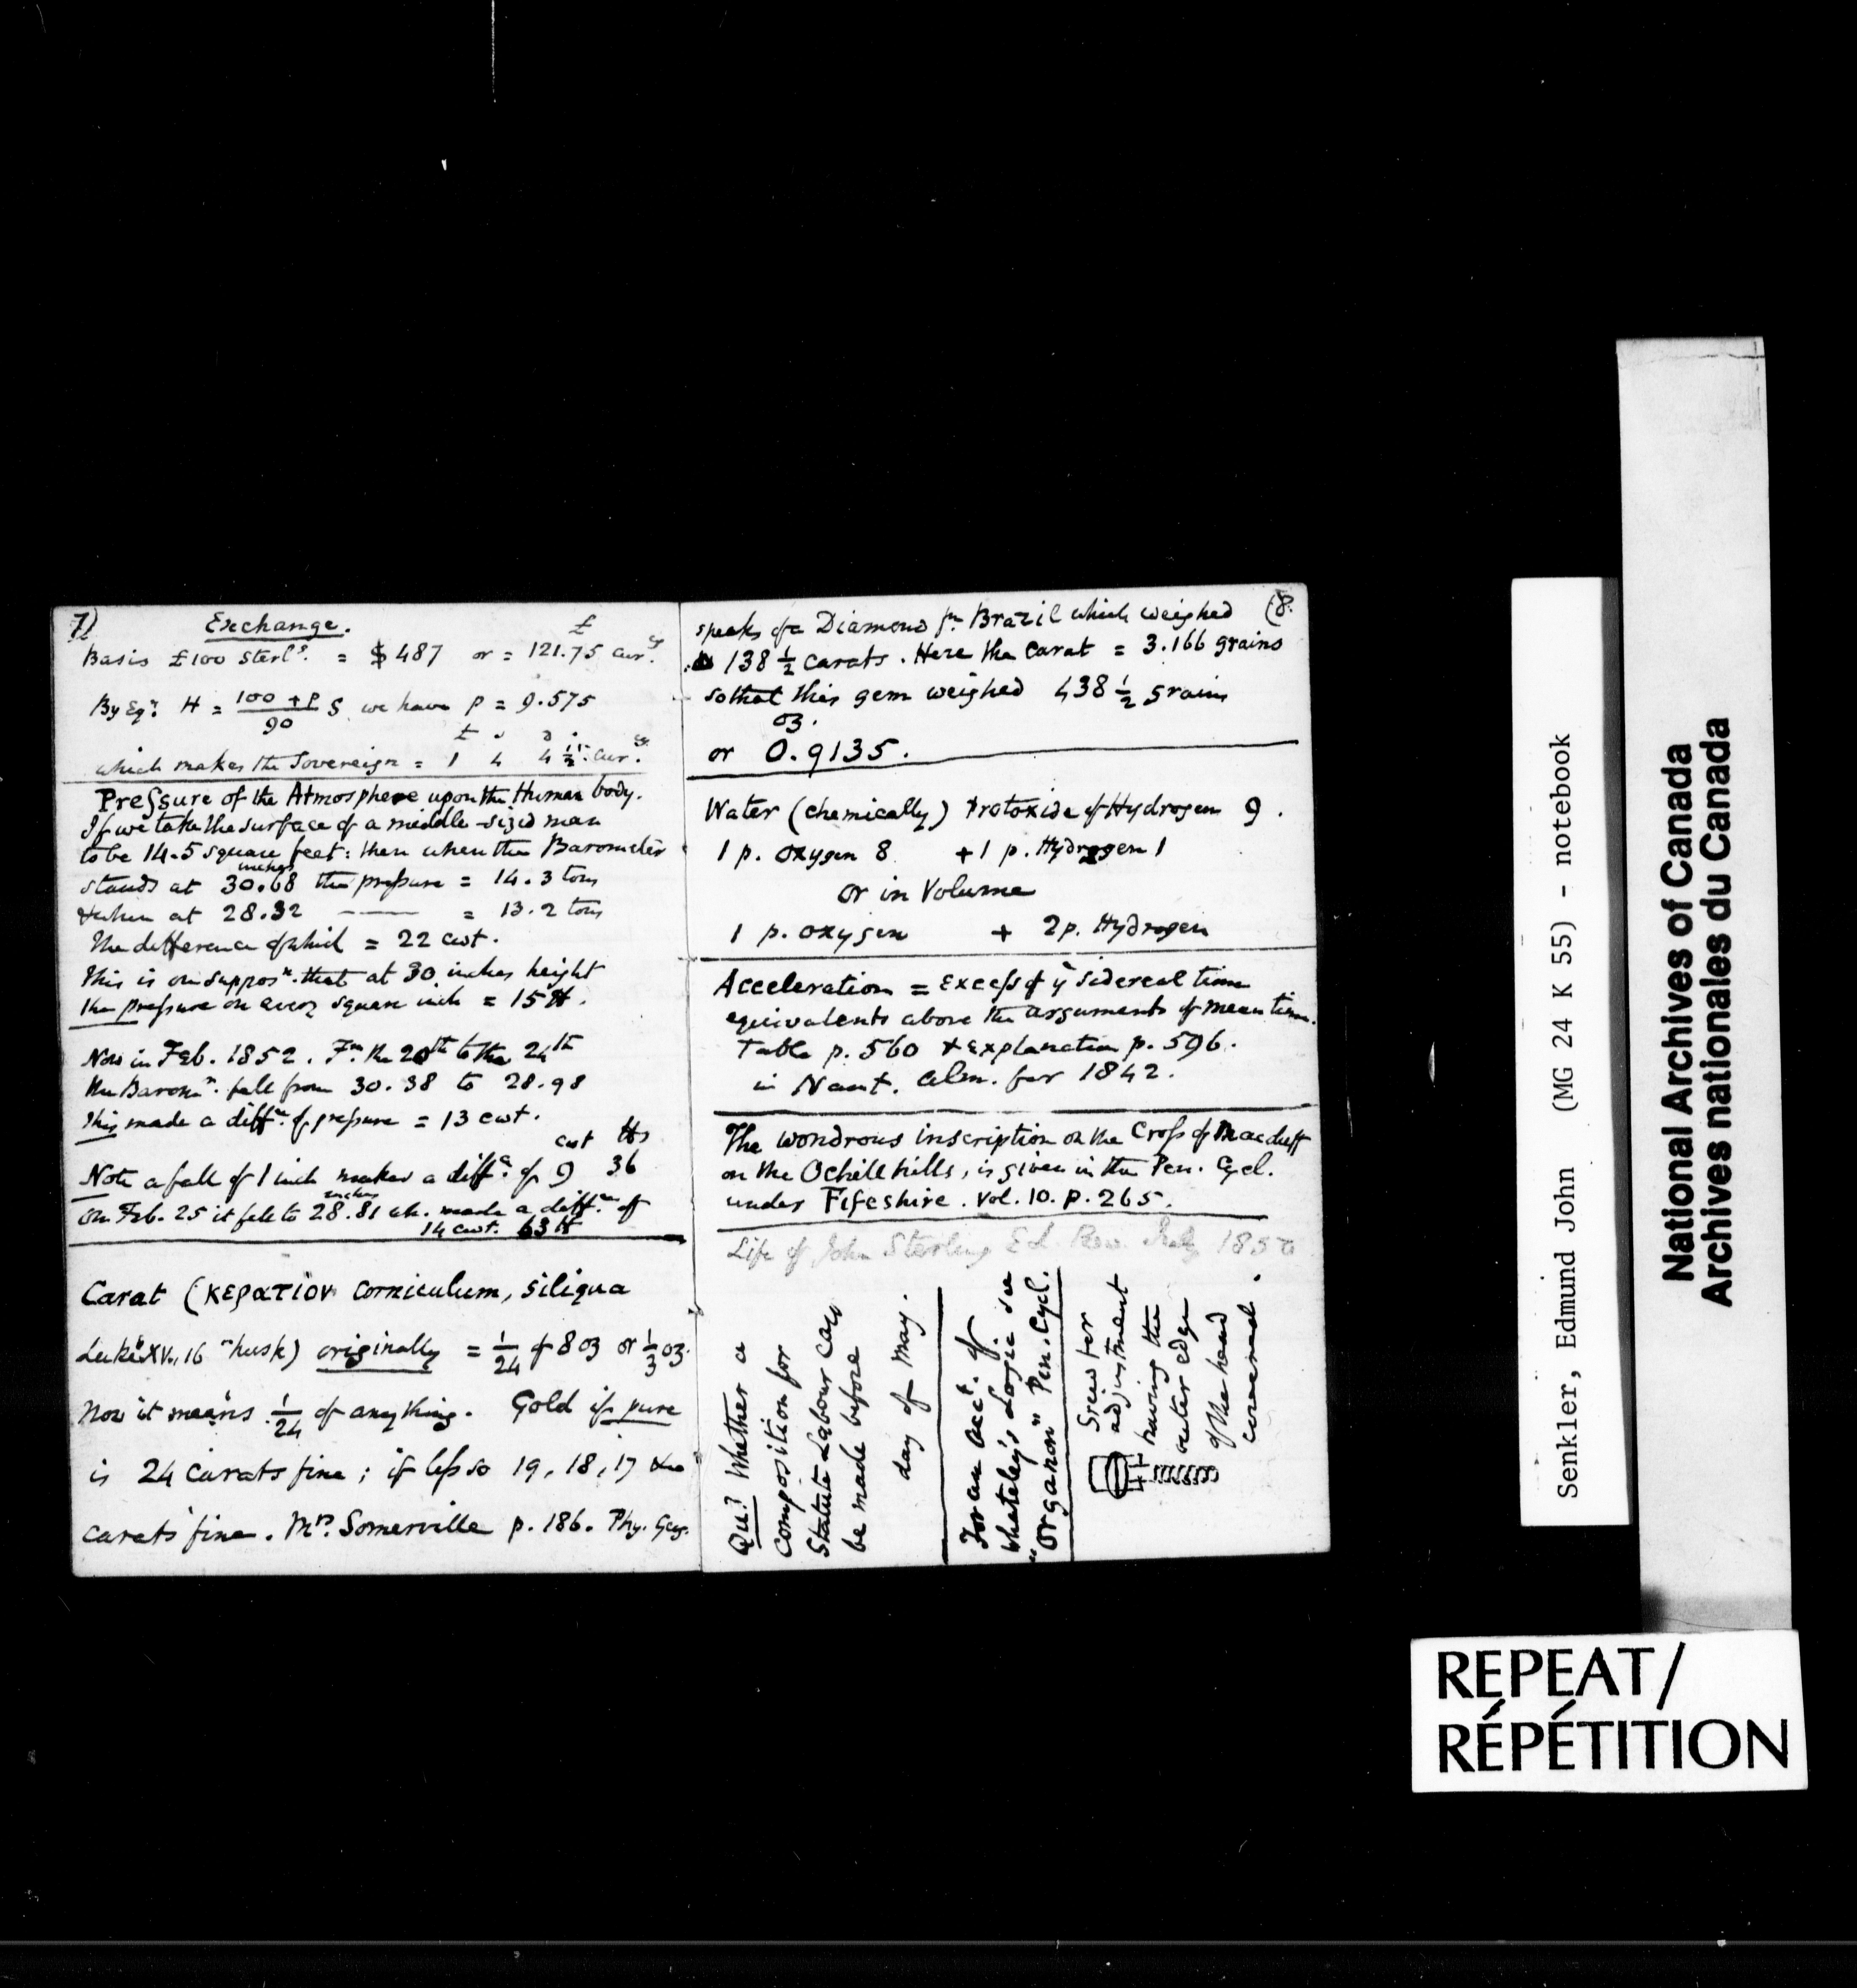 7)
Exchange.
£
Basis £100 Sterlg. = $487 or = 121.75 curcy.
By Eqn. H = 100 + P / 90 S we have P = 9.575
£ s D
which makes the Sovereign = 1 4 4 1/2 curcy.
Pressure of the Atmosphere upon the Human body.
If we take the surface of a middle-sized man
to be 14.5 square feet: then when the Barometer
stands at 30.68 inches the pressure = 14.3 tons
& when at 28.32 —— = 13.2 tons
The difference of which = 22 cwt.
This is on supposn. that at 30 inches height
the pressure on every square inch = 15 ℔.
Now in Feb. 1852. Fm. the 20th to the 24th
the Baromr. fell from 30.38 to 28.98
This made a diffce. of pressure = 13 cwt.
cwt ℔s
Note a fall of 1 inch makes a diffce. of 9 36
On Feb. 25 it fell to 28.81 inches wh. made a diffce. of
14 cwt. 63 ℔
Carat (κερατιον corniculum, siliqua
Luke XV., 16 "husk) originally = 1/24 of 8 oz or 1/3 oz.
Now it means 1/24 of anything. Gold if pure
is 24 carats fine; if less so 19, 18, 17 &c
carats fine. Mrs. Somerville p. 186. Phy. Geog.
(8.
speaks of a Diamond fm. Brazil which weighed
138 1/2 carats. Here the Carat = 3.166 grains
so that this gem weighed 438 1/2 grains
oz.
or 0.9135.
Water (chemically) Protoxide of Hydrogen 9.
1 p. oxygen 8 + 1 p. Hydrogen 1
or in Volume
1 p. oxygen + 2 p. Hydrogen
Acceleration = excess of ye sidereal time
equivalents above the arguments of mean time.
Table p. 560 & explanation p. 596.
in Naut. Alm. for 1842.
The wondrous inscription on the Cross of Macduff
on the Ochill hills, is given in the Pen. Cycl.
under Fifeshire. Vol. 10. p. 265.
Life of John Sterling Ed. Rev. July 185
Qu? Whether a
composition for
Statute Labour can
be made before
day of May.
For an acct. of
Whateley's Logic see
"Organon" Pen. Cycl.
Screw for
adjustment
having the
outer edge
of the head
Senkler, Edmund John (MG 24 K 55) - notebook
National Archives of Canada
Archives nationales du Canada
REPEAT/
RÉPÉTITION